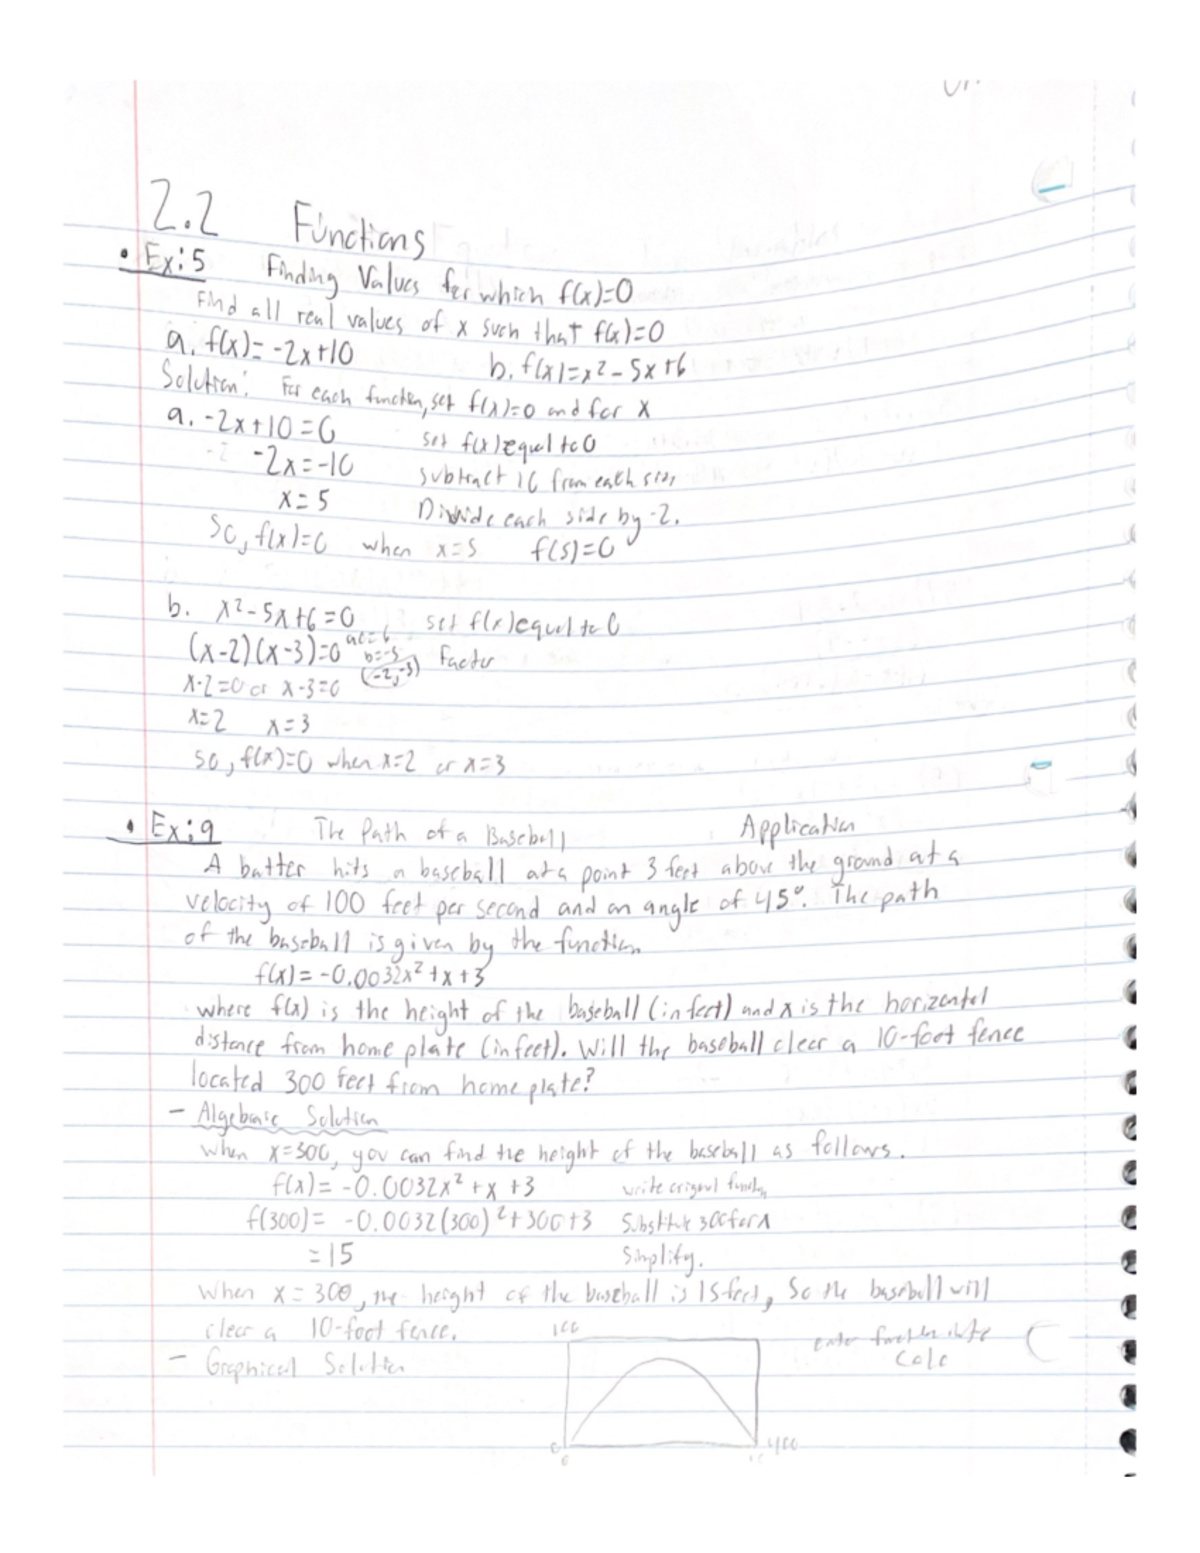 2.2 Functions
• Ex: 5 Finding Values for which f(x)=0
Find all real values of x such that f(x)=0
a. f(x)= -2x+10 b. f(x)=x² - 5x+6
Solution: For each function, set f(x)=0 and for x
a. -2x+10=0 set f(x) equal to 0
-2x=-10 subtract 10 from each side
x=5 Divide each side by -2.
So, f(x)=0 when x=5 f(5)=0
b. x²-5x+6=0 set f(x) equal to 0
(x-2)(x-3)=0 ac=6 b=-5 (-2,-3) Factor
x-2=0 or x-3=0
x=2 x=3
so, f(x)=0 when x=2 or x=3
• Ex: 9 The Path of a Baseball Application
A batter hits a baseball at a point 3 feet above the ground at a
velocity of 100 feet per second and an angle of 45°. The path
of the baseball is given by the function
f(x)= -0.0032x²+x+3
where f(x) is the height of the baseball (in feet) and x is the horizontal
distance from home plate (in feet). Will the baseball clear a 10-foot fence
located 300 feet from home plate?
- Algebraic Solution
When x=300, you can find the height of the baseball as follows.
f(x)= -0.0032x²+x+3 write original function
f(300)= -0.0032(300)²+300+3 Substitute 300 for x
=15 Simplify.
When x=300, the height of the baseball is 15 feet, So the baseball will
clear a 10-foot fence.
100
enter function into
calc
- Graphical Solution
0 400
0